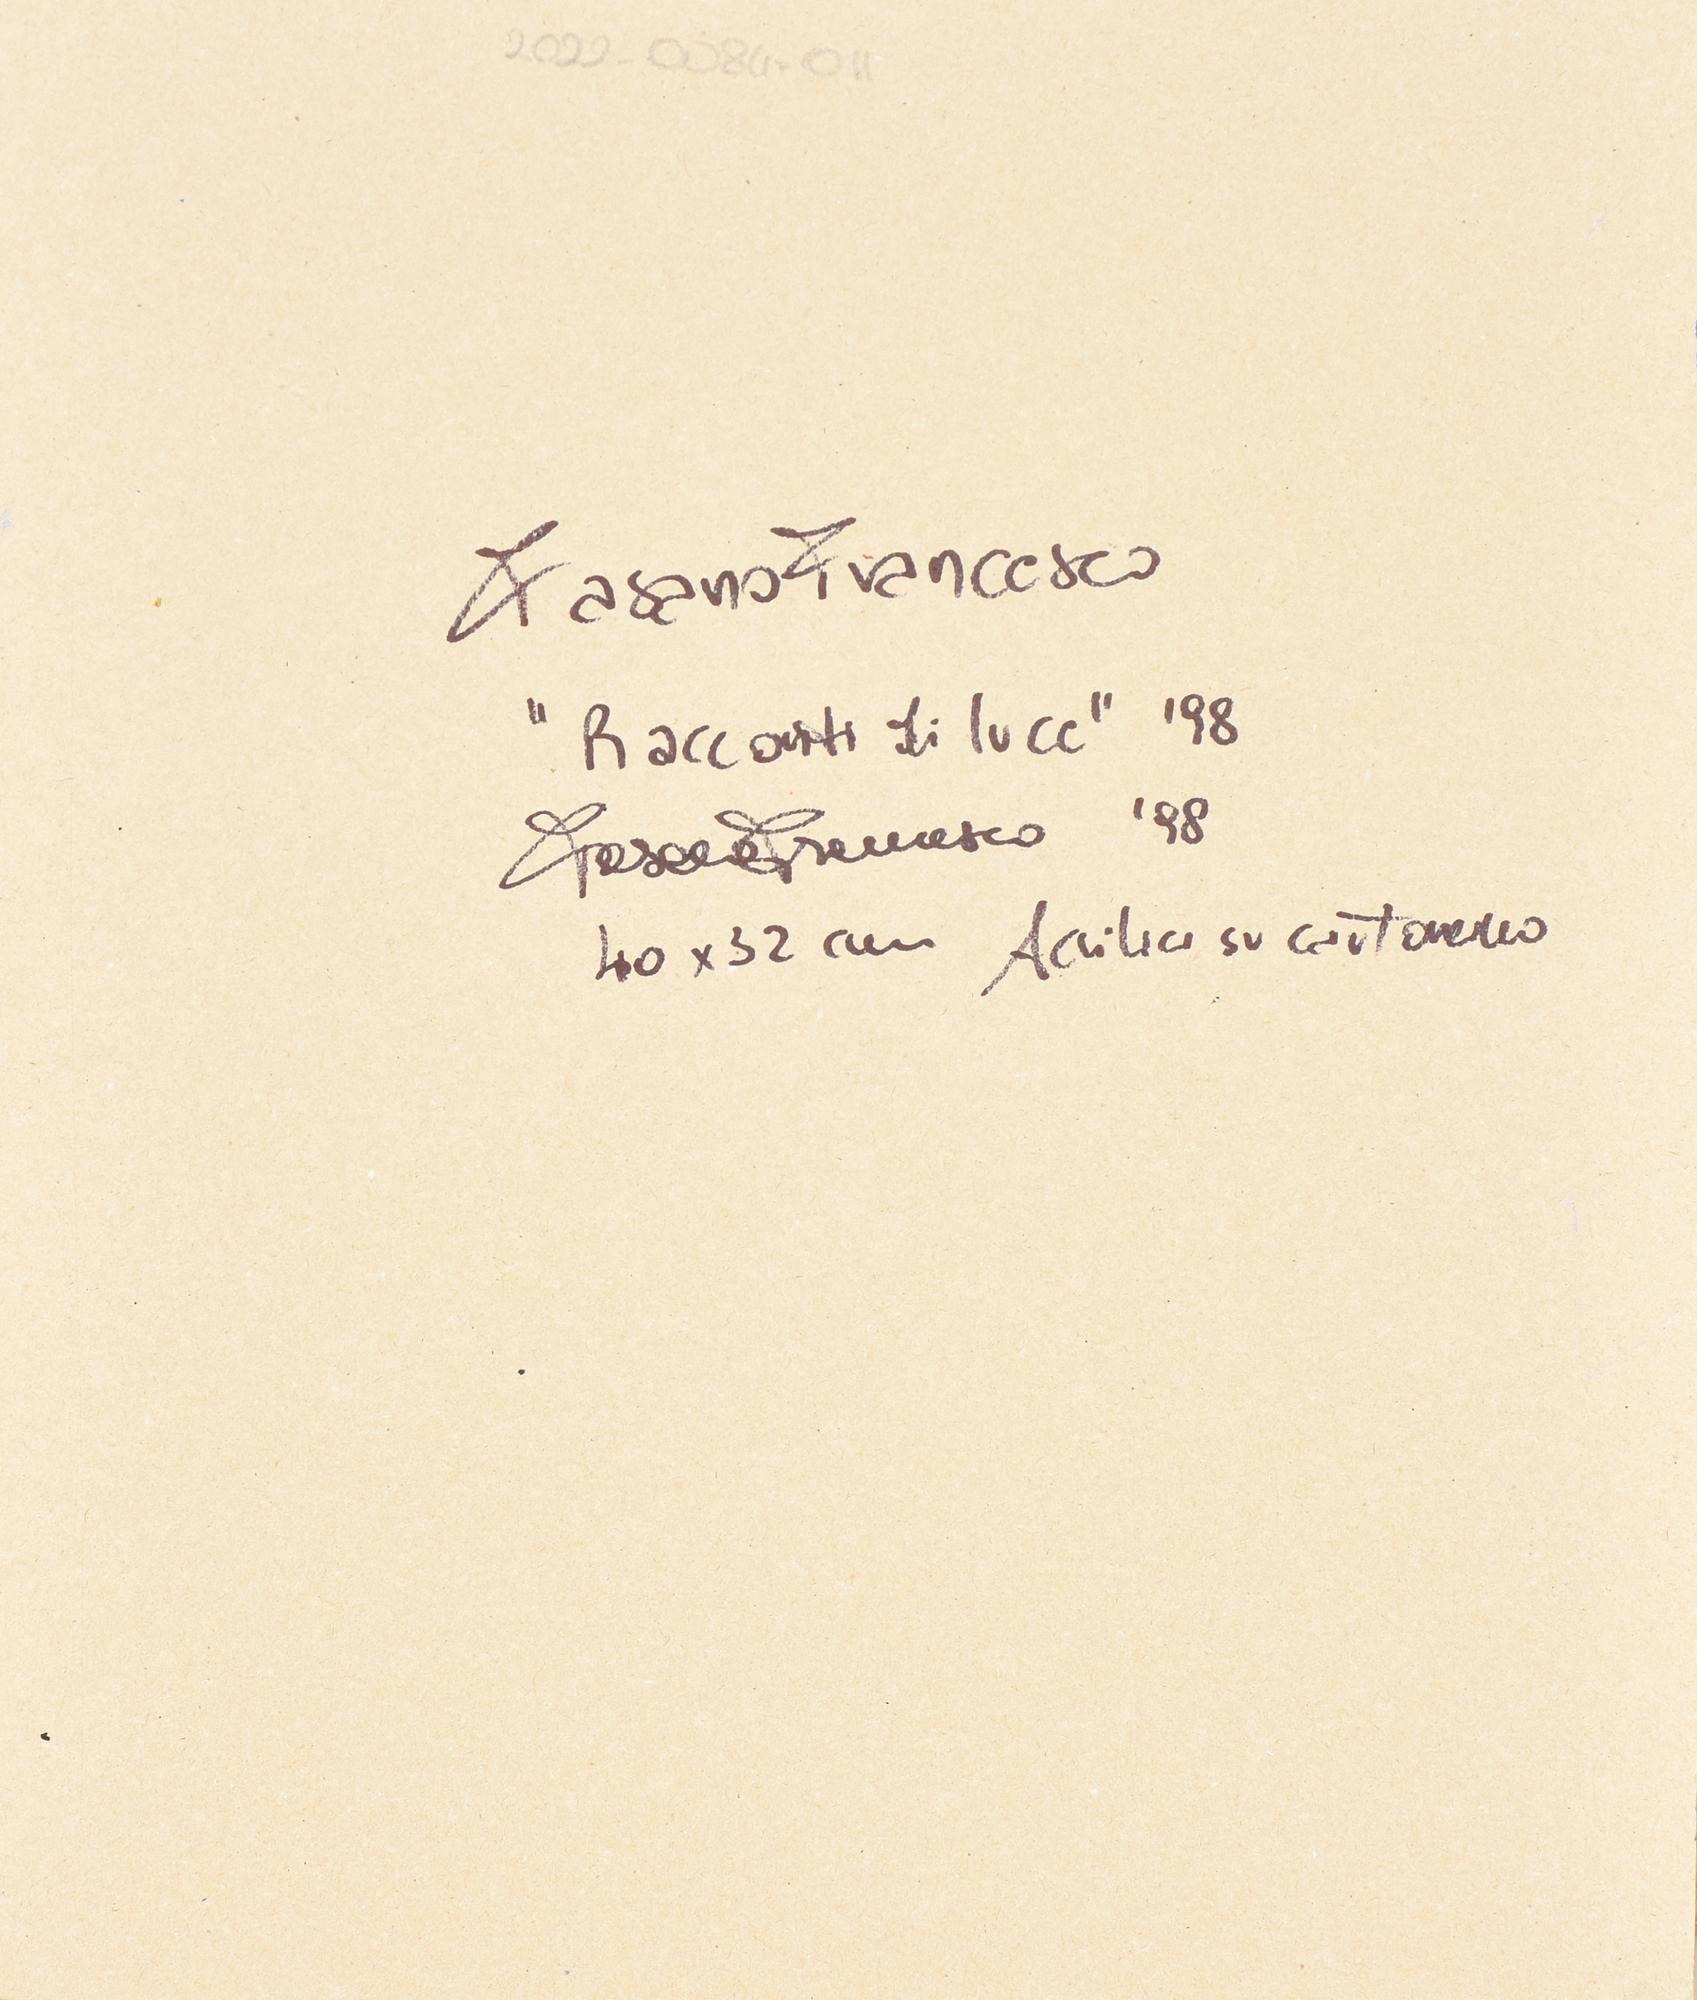 2022-0084-011
Fasano Francesco
"Racconti di luce" '98
Fasano Francesco '98
40 x 32 cm Acrilico su cartoncino